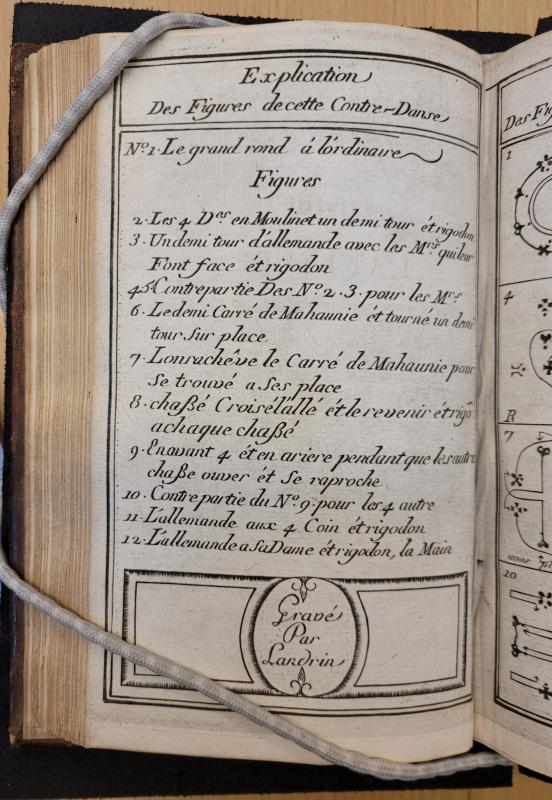 Explication
Des Figures de cette Contre-Danse
No. 1. Le grand rond á lórdinaire
Figures
2. Les 4 Des en Moulinet un demi tour étrigodon
3. Un demi tour d'allemande avec les Mrs qui leur
Font face étrigodon
4.5. Contrepartie Des No. 2. 3. pour les Mrs
6. Le demi Carré de Mahaunie ét tourné un demi
tour sur place
7. Lonrachêve le Carré de Mahaunie pour
Se trouvé a Ses place
8. chaßé Croisé l'allé ét le revenir étrigo
achaque chaßé
9. Enavant 4 ét en ariere pendant que les autre
chaße ouver ét Se raproche
10. Contre partie du No. 9. pour les 4 autre
11. L'allemande aux 4 Coin étrigodon
12. L'allemande a Sa Dame étrigodon, la Main
Gravé
Par
Landrin
Des Fig
1
4
R
7
10